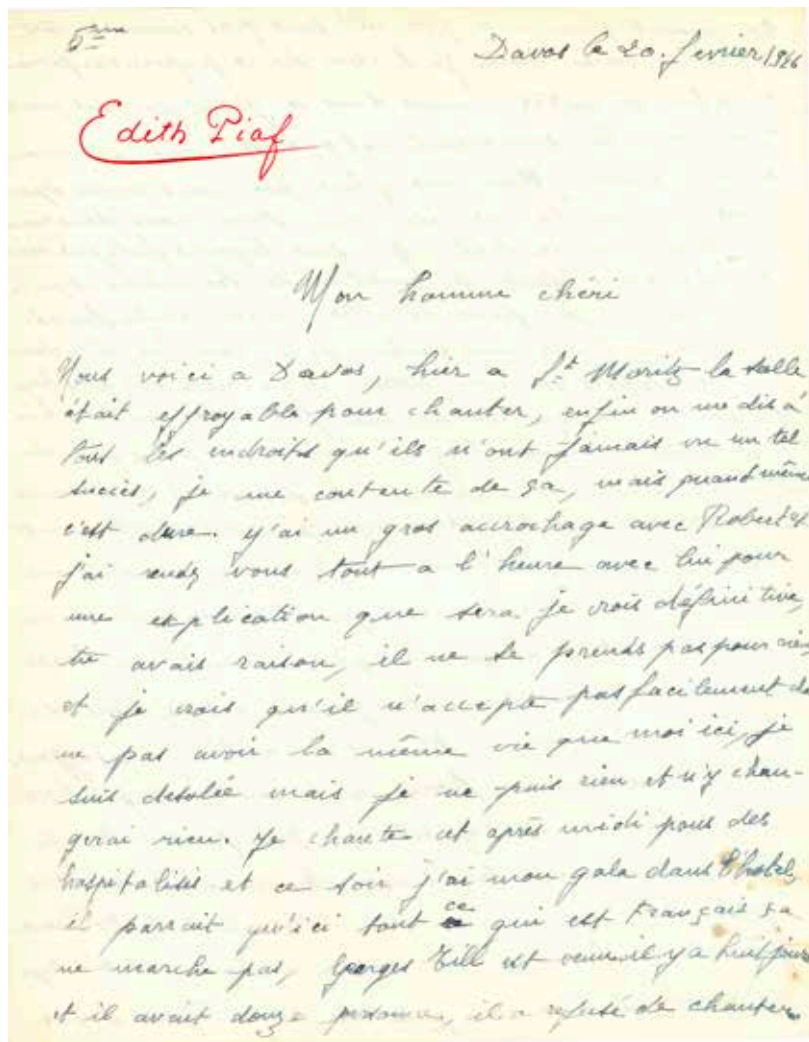 5ème
Davos le 20. fevrier 1946
Edith Piaf
Mon homme chéri
Nous voici a Davos, hier a St Moritz la salle
était effroyable pour chanter, enfin on me dis a
tous les endroits qu'ils n'ont jamais vu un tel
succès, je me contente de ça, mais quand même
c'est dure. y'ai un gros accrochage avec Robert et
j'ai rendez vous tout a l'heure avec lui pour
une explication que sera je crois définitive,
tu avais raison, il ne se prends pas pour rien
et je crois qu'il n'accepte pas facilement de
ne pas avoir la même vie que moi ici, je
suis desolée mais je ne puis rien et n'y chan-
gerai rien. Je chante cet après midi pour des
hospitalisés et ce soir j'ai mon gala dans l'hotel,
il parrait qu'ici tout ce qui est Français ça
ne marche pas, Georges Till est venu il y a huit jours
et il avait douze personne, il a refusé de chanter